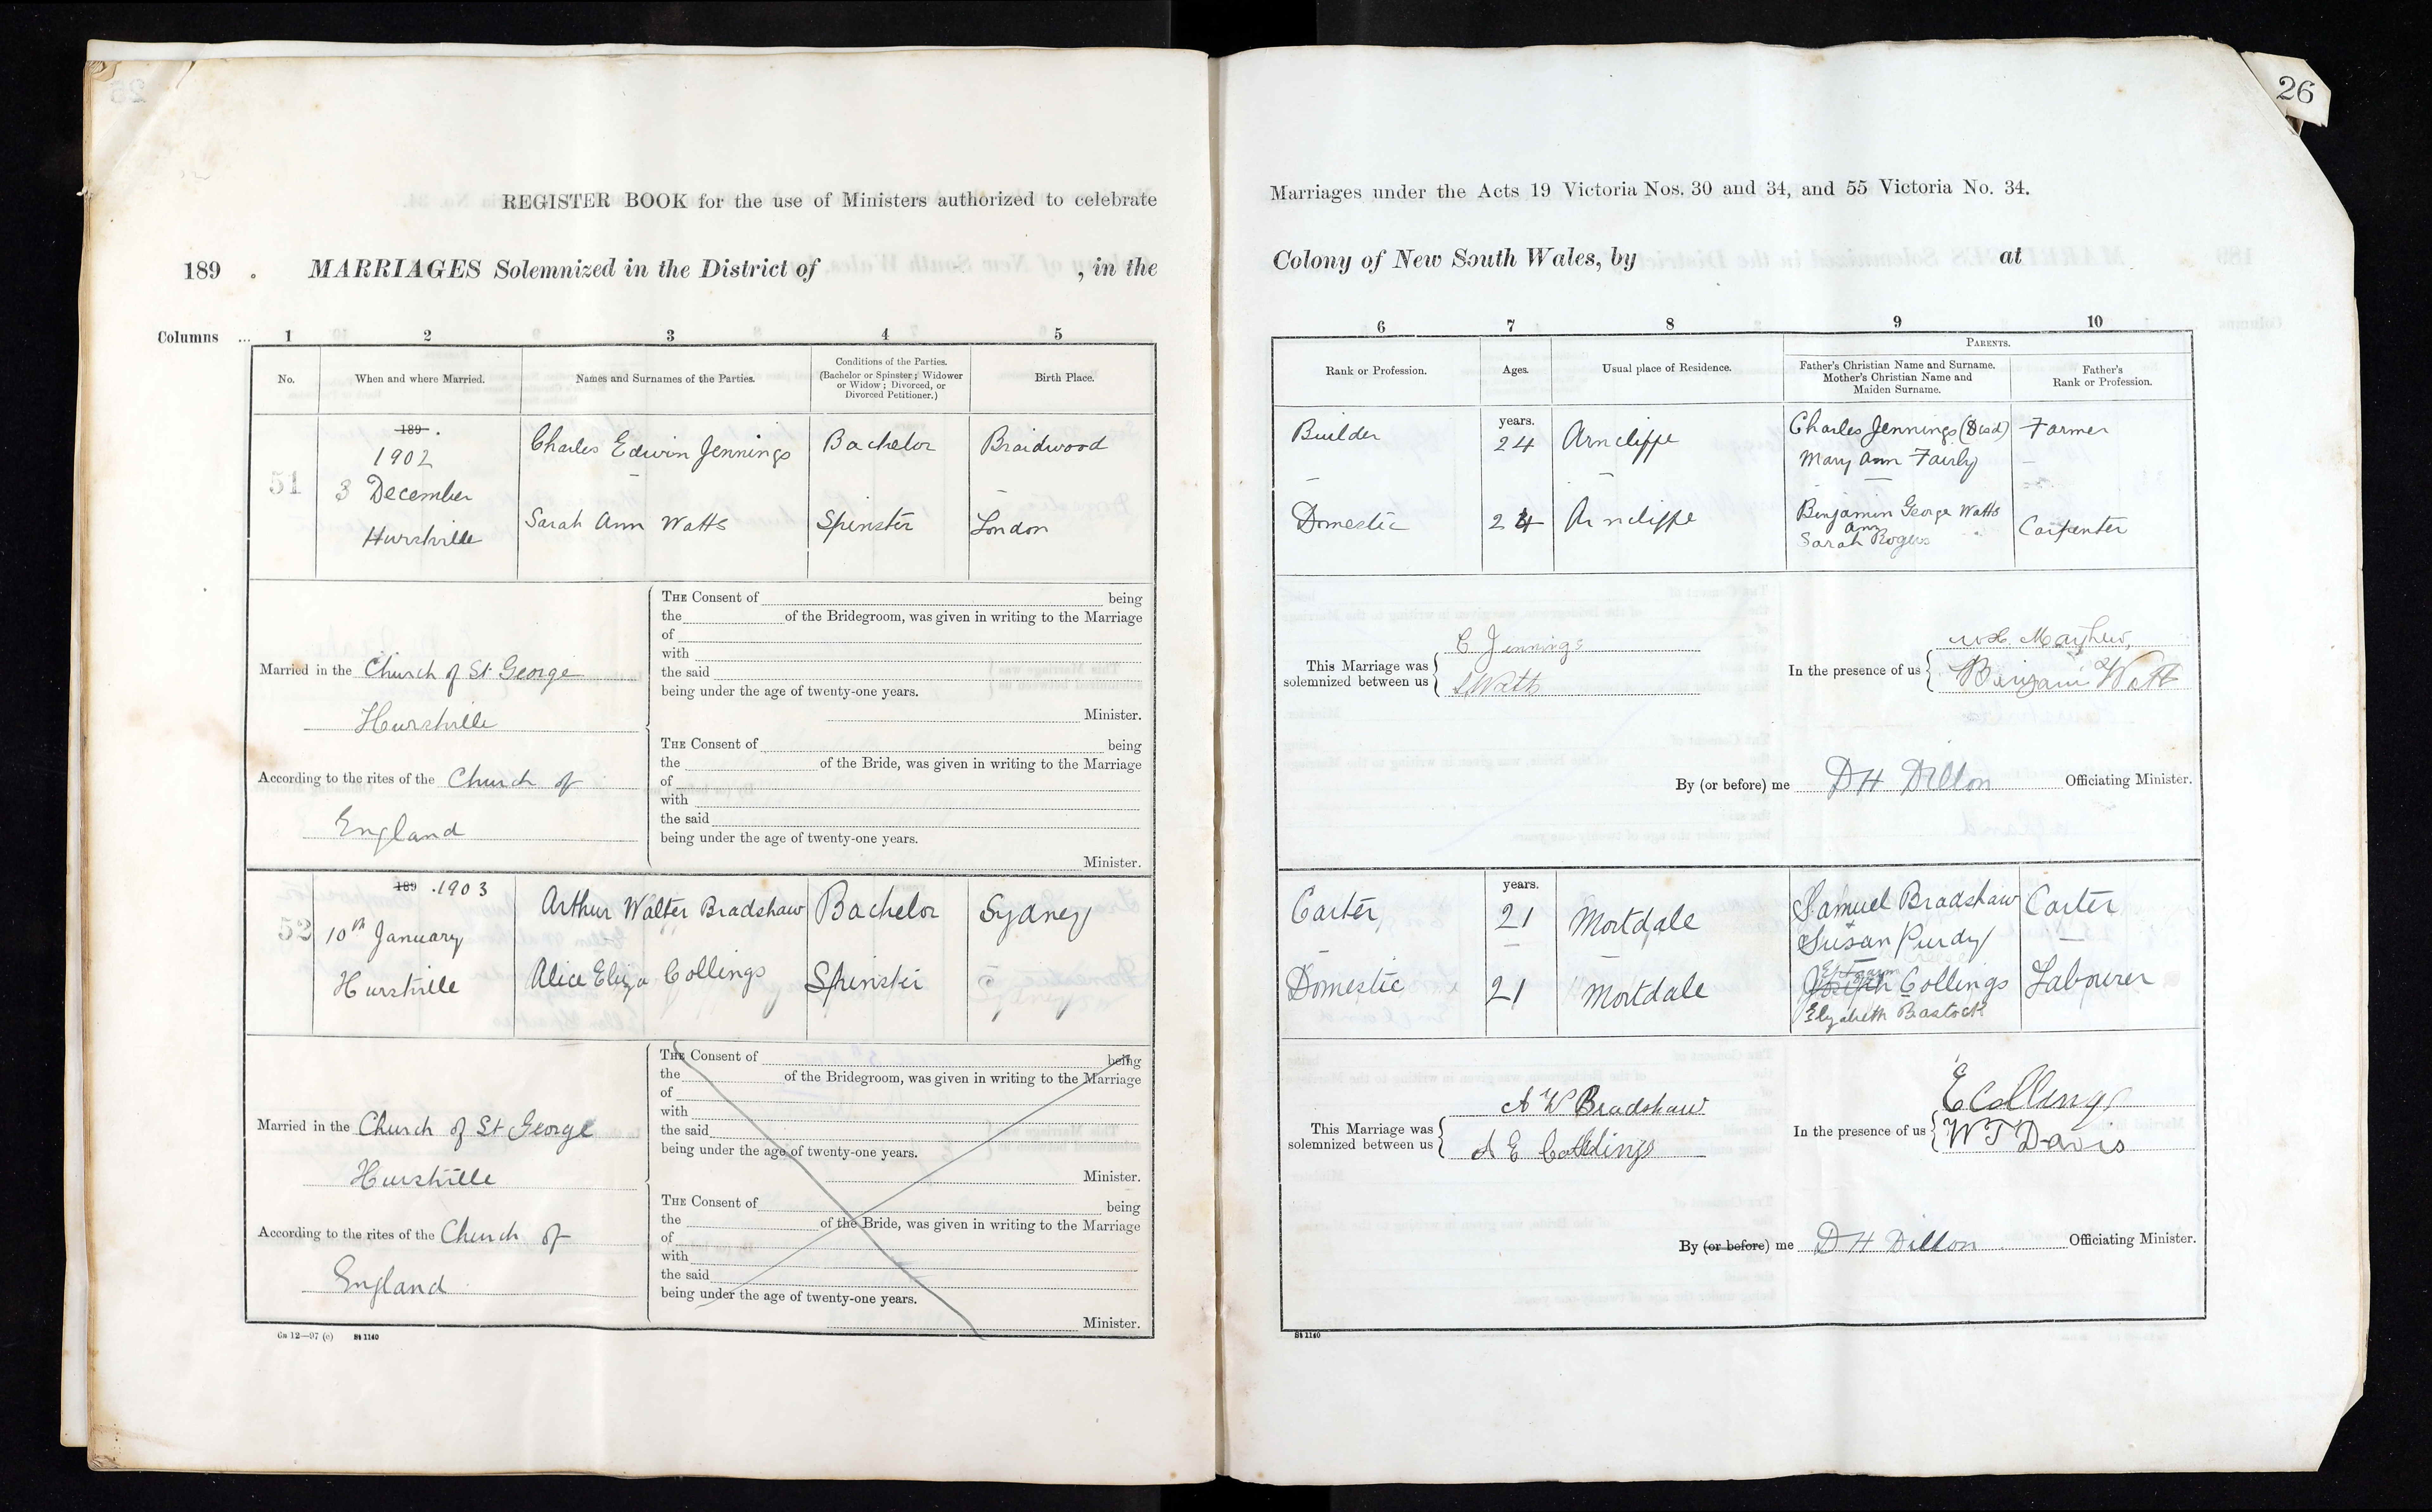 26
REGISTER BOOK for the use of Ministers authorized to celebrate
Marriages under the Acts 19 Victoria Nos. 30 and 34, and 55 Victoria No. 34.
189 . MARRIAGES Solemnized in the District of , in the
Colony of New South Wales, by at
Columns ... 1 2 3 4 5
6 7 8 9 10
No.
When and where Married.
Names and Surnames of the Parties.
Conditions of the Parties.
(Bachelor or Spinster; Widower
or Widow; Divorced, or
Divorced Petitioner.)
Birth Place.
Rank or Profession.
Ages.
Usual place of Residence.
PARENTS.
Father's Christian Name and Surname.
Mother's Christian Name and
Maiden Surname.
Father's
Rank or Profession.
51
189 .
1902
3 December
Hurstville
Charles Edwin Jennings
Bachelor
Braidwood
Sarah Ann Watts
Spinster
London
Builder
years.
24
Arncliffe
Charles Jennings (Decd)
Mary Ann Fairly
Farmer
Domestic
24
Arncliffe
Benjamin George Watts
Ann
Sarah Rogers
Carpenter
Married in the Church of St George
Hurstville
According to the rites of the Church of
England
THE Consent of being
the of the Bridegroom, was given in writing to the Marriage
of
with
the said
being under the age of twenty-one years.
Minister.
THE Consent of being
the of the Bride, was given in writing to the Marriage
of
with
the said
being under the age of twenty-one years.
Minister.
This Marriage was
solemnized between us
C Jennings
S Watts
In the presence of us
W. H. Mayhew,
Benjamin Watts
By (or before) me D H Dillon Officiating Minister.
52
189 .1903
10th January
Hurstville
Arthur Walter Bradshaw
Bachelor
Sydney
Alice Eliza Collings
Spinster
Carter
years.
21
Mortdale
Samuel Bradshaw
Susan Purdy
Carter
Domestic
21
Mortdale
Joseph Collings
Elizabeth Bastock
Labourer
Married in the Church of St George
Hurstville
According to the rites of the Church of
England
THE Consent of being
the of the Bridegroom, was given in writing to the Marriage
of
with
the said
being under the age of twenty-one years.
Minister.
THE Consent of being
the of the Bride, was given in writing to the Marriage
of
with
the said
being under the age of twenty-one years.
Minister.
This Marriage was
solemnized between us
A W Bradshaw
A E Collings
In the presence of us
E Collings
W T Davis
By (or before) me D H Dillon Officiating Minister.
Gs 12—97 (c) St 1140
St 1140